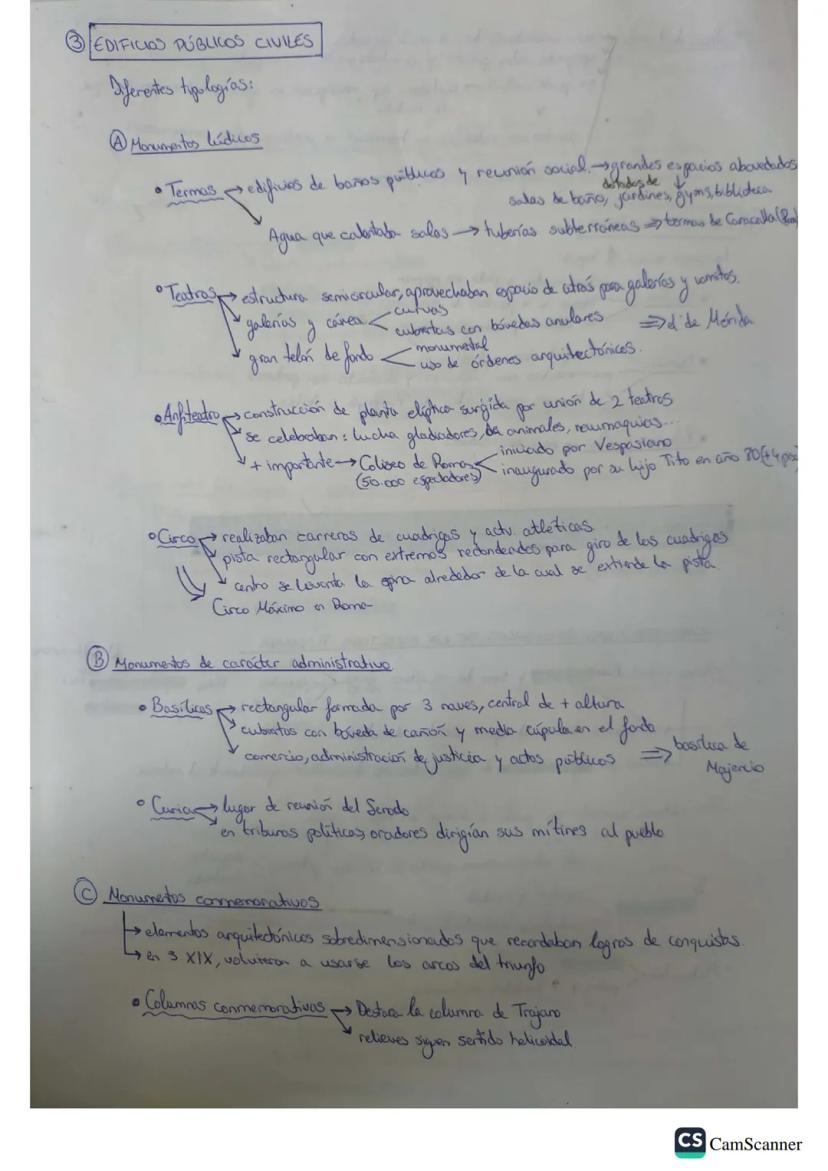 ③ EDIFICIOS PÚBLICOS CIVILES
Diferentes tipologías:
Ⓐ Monumentos lúdicos
• Termas → edificios de baños públicos y reunión social. → grandes espacios abovedados
dotados de ↓
salas de baño, jardines, gyms, biblioteca
Agua que calentaba salas → tuberías subterráneas ⇒ termas de Caracalla
• Teatros → estructura semicircular, aprovechaban espacio de atrás para galerías y vomitos.
galerías y cávea < curvas
cubiertas con bóvedas anulares ⇒ d' de Mérida
gran telón de fondo < monumental
uso de órdenes arquitectónicos.
• Anfiteatro → construcción de planta elíptica surgida por unión de 2 teatros
se celebraban: lucha gladiadores, de animales, naumaquias...
+ importante → Coliseo de Roma < iniciado por Vespasiano
(50.000 espectadores) inaugurado por su hijo Tito en año 80
• Circo → realizaban carreras de cuadrigas y actv. atléticas
pista rectangular con extremos redondeados para giro de las cuadrigas
centro se levanta la spina alrededor de la cual se extiende la pista
Circo Máximo en Roma
Ⓑ Monumentos de carácter administrativo
• Basílicas → rectangular formada por 3 naves, central de + altura
cubiertas con bóveda de cañón y media cúpula en el fondo
comercio, administración de justicia y actos públicos ⇒ basílica de
Majencio
• Curia → lugar de reunión del Senado
en tribunas políticas, oradores dirigían sus mítines al pueblo
Ⓒ Monumentos conmemorativos
→ elementos arquitectónicos sobredimensionados que recordaban logros de conquistas.
→ en S XIX, volvieron a usarse los arcos del triunfo
• Columnas conmemorativas → Destaca la columna de Trajano
relieves siguen sentido helicoidal
CS CamScanner